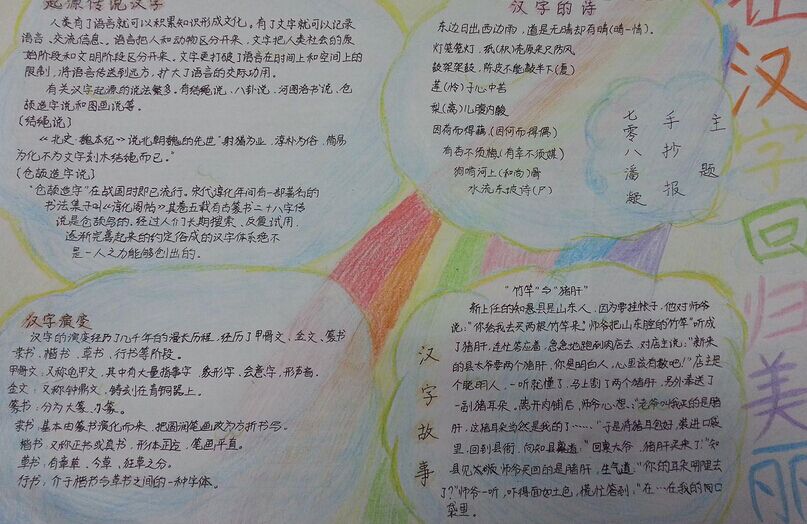 起源传说汉字
人类有了语言就可以积累知识形成文化。有了文字就可以记录
语言、交流信息。语言把人和动物区分开来,文字把人类社会的原
始阶段和文明阶段区分开来。文字更打破了语言在时间上和空间上的
限制,将语言传送到远方,扩大了语言的交际功用。
有关汉字起源的说法繁多。有结绳说、八卦说、河图洛书说、仓
颉造字说和图画说等。
[结绳说]
《北史·魏本纪》说北朝魏的先世"射猎为业,淳朴为俗,简易
为化,不为文字刻木结绳而已。"
[仓颉造字说]
"仓颉造字"在战国时即已流行。宋代淳化年间有一部著名的
书法集子叫《淳化阁帖》其卷五载有古篆书二十八字传
说是仓颉写的。经过人们长期搜索、反复试用,
逐渐完善起来的约定俗成的汉字体系绝不
是一人之力能够创出的。
汉字的诗
东边日出西边雨,道是无晴却有晴(晴-情)。
灯笼笼灯,纸(枳)壳原来只防风
鼓架架鼓,陈皮不能敲半下(夏)
莲(怜)子心中苦
梨(离)儿腹内酸
因荷而得藕(因何而得偶)
有杏不须梅(有幸不须媒)
狗啃河上(和尚)骨
水流东坡诗(尸)
主题
手抄报
七零八潘凝
在汉字回归美丽
汉字演变
汉字的演变经历了几千年的漫长历程,经历了甲骨文、金文、篆书
隶书、楷书、草书、行书等阶段。
甲骨文:又称龟甲文,其中有大量指事字、象形字、会意字,形声字。
金文:又称钟鼎文,铸刻在青铜器上。
篆书:分为大篆、小篆。
隶书:基本由篆书演化而来,把圆润笔画改为方折书写。
楷书:又称正书或真书,形体正方,笔画平直。
草书:有章草、今草、狂草之分。
行书:介于楷书与草书之间的一种字体。
汉字故事
"竹竿"与"猪肝"
新上任的知县是山东人,因为要挂帐子,他对师爷
说:"你给我去买两根竹竿来。师爷把山东腔的竹竿"听成
了猪肝,连忙答应着,急急地跑到肉店去,对店主说:"新来
的县太爷要两个猪肝,你是明白人,心里该有数吧!"店主是
个聪明人,一听就懂了,马上割了两个猪肝,另外奉送了
一副猪耳朵。离开肉铺后,师爷心想:"老爷叫我买的是猪
肝,这猪耳朵当然是我的了……"于是将猪耳包好,装进口袋
里,回到县衙,向知县禀道:"回禀太爷,猪肝买来了!"知
县见师爷买回的是猪肝,生气道:"你的耳朵哪里去
了?"师爷一听,吓得面如土色,慌忙答到:"在…在我的口
袋里。